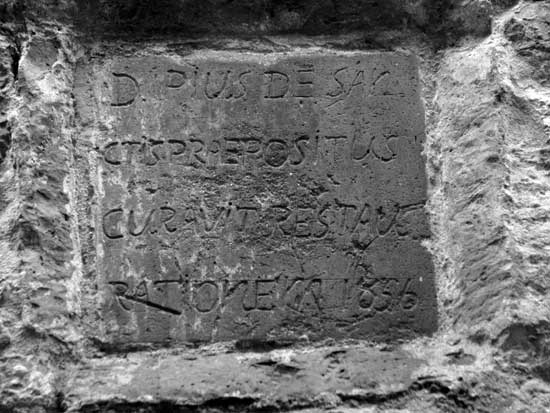 D. PIUS DE SAC
CTIS PRAEPOSITUS
CURAVIT RESTAU
RATIONEM 1856